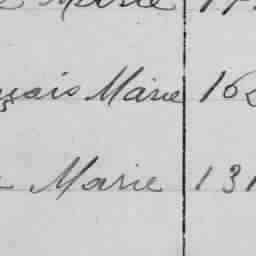 Marie
çais Marie 16
Marie 131